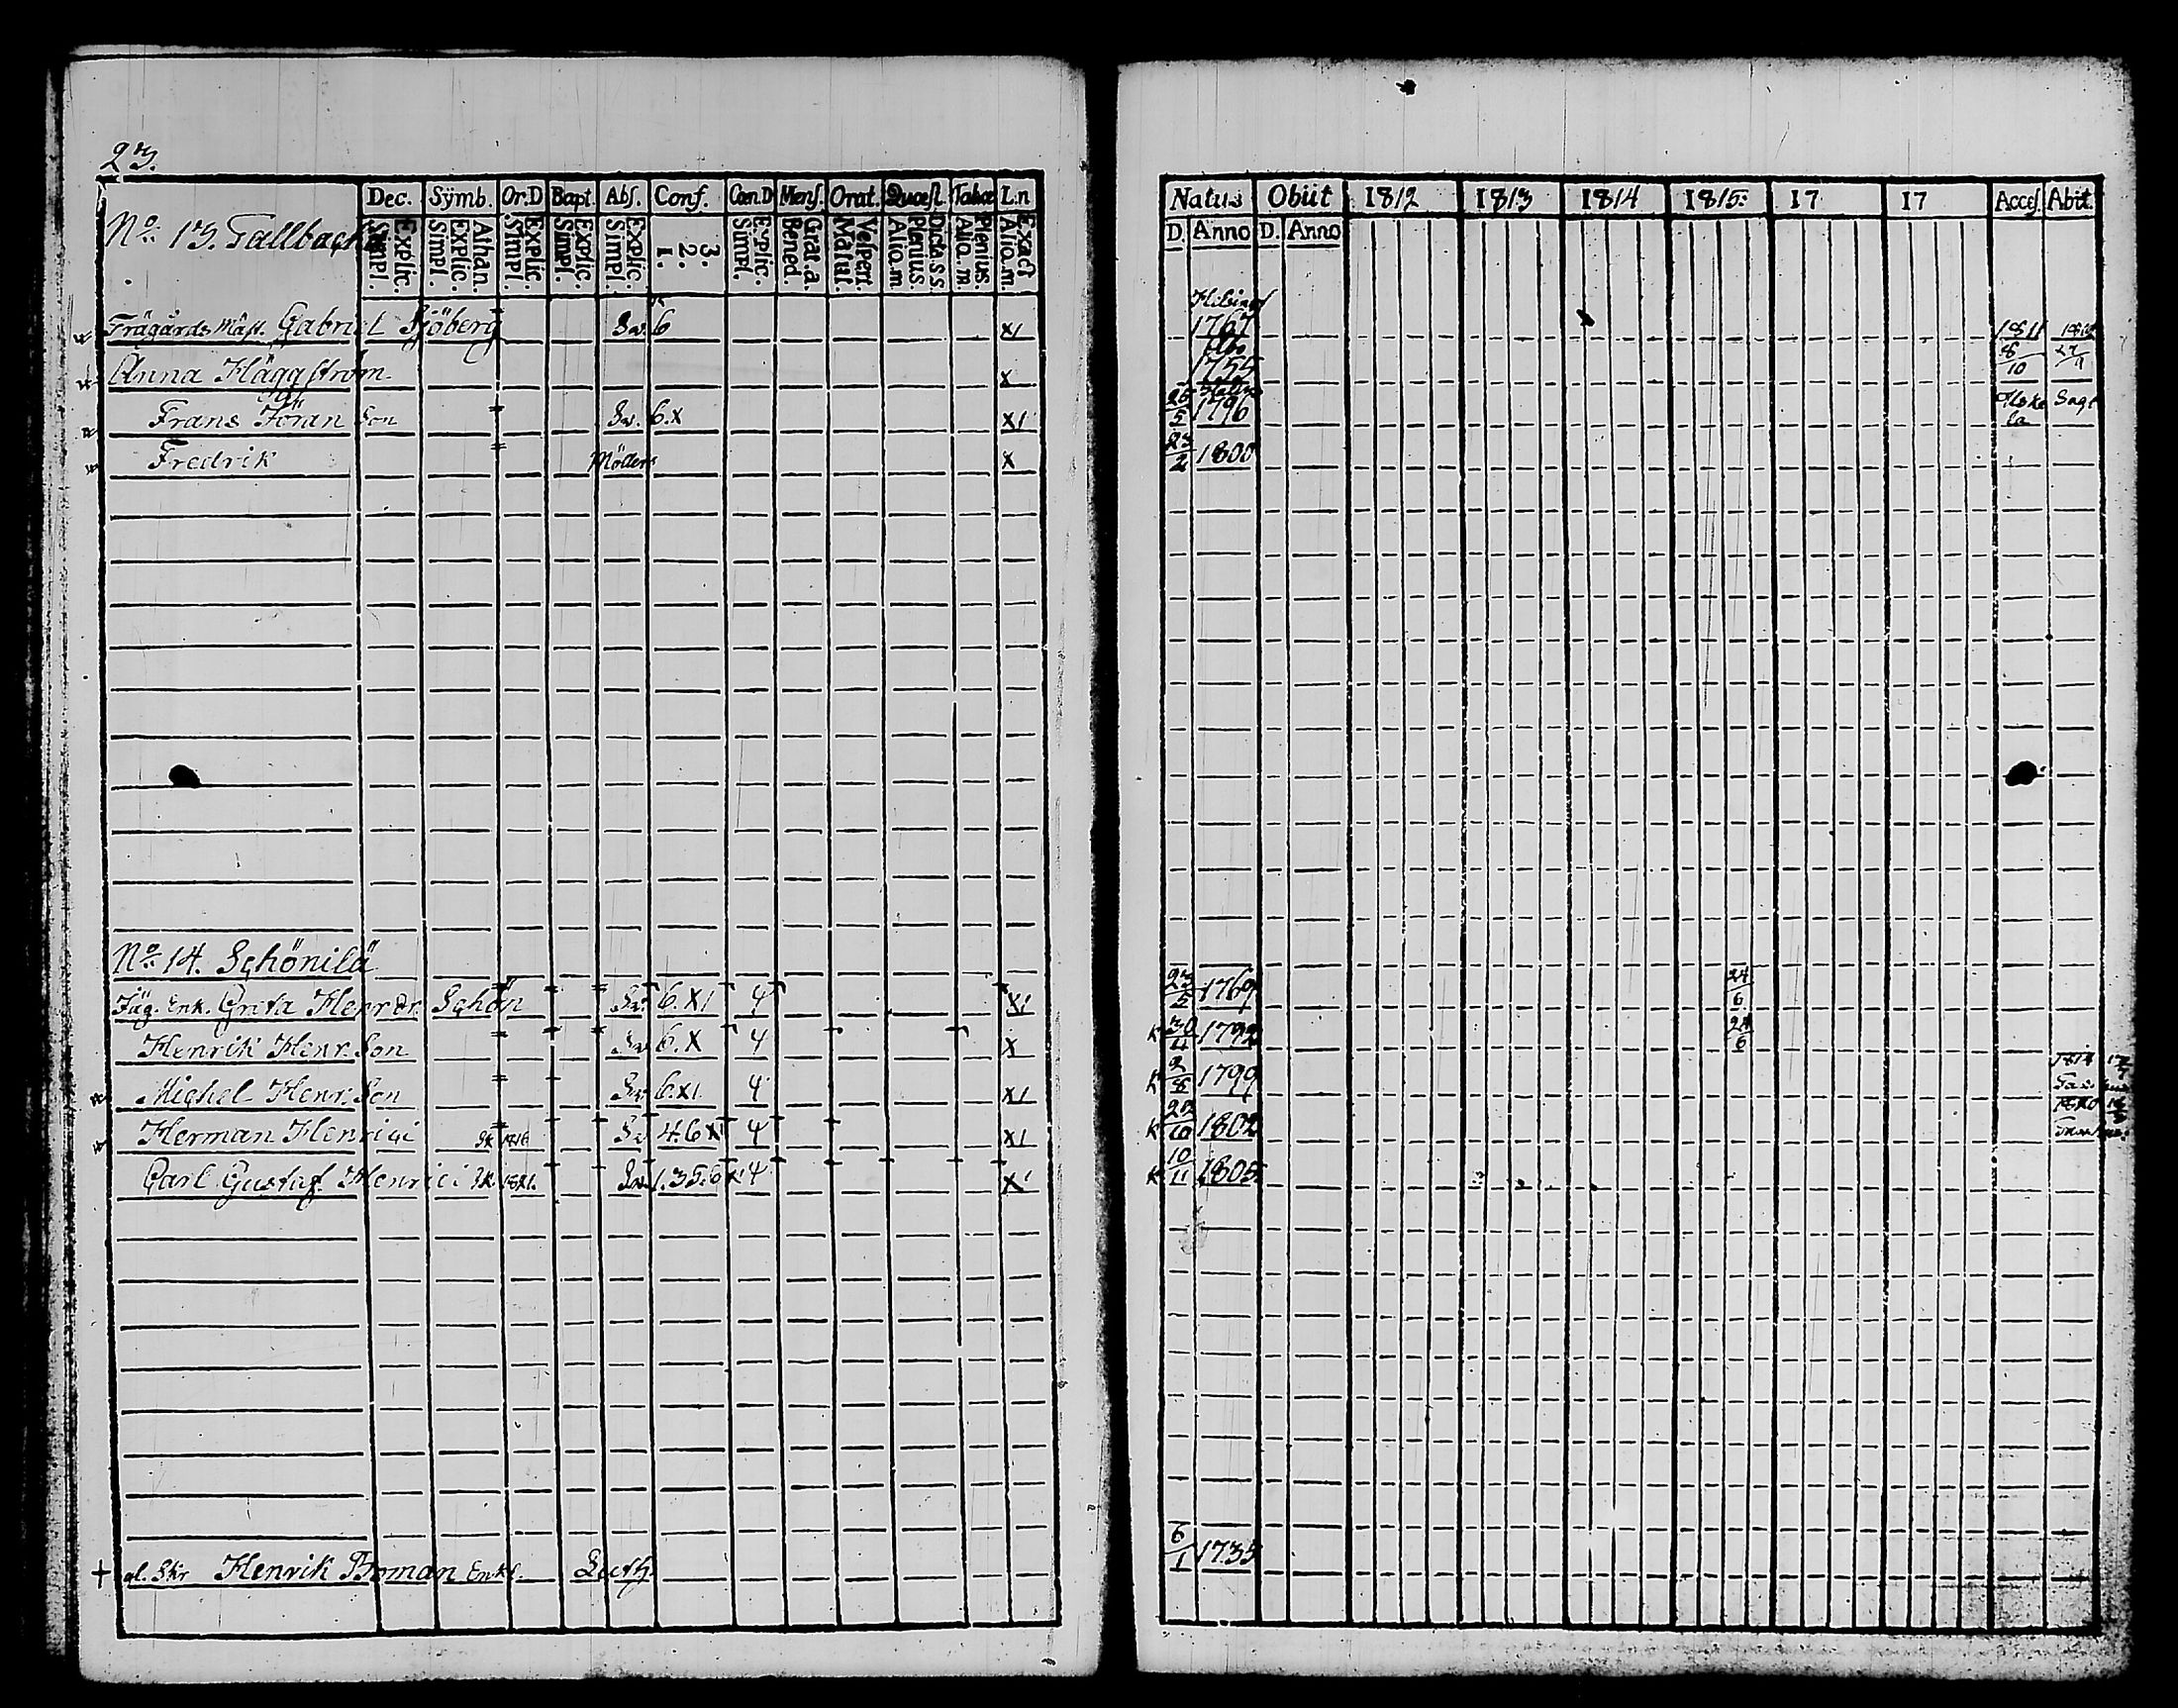 23.
Dec. Symb. Or.D Bapt. Abs. Conf. Cœn.D Mens. Orat. Quæst. Tabæ L.n
No: 13. Tallbacka
Explic. Simpl. Athan. Explic. Simpl. Explic. Simpl. Explic. Simpl. Explic. Simpl. 3. 2. 1. Explic. Simpl. Grat.a. Bened. Vespert. Matut. Dicta.s.s. Plenius. Aliq.m Plenius. Aliq.m. Exact Aliq.m.
Trägårds Mäst. Gabriel Sjöberg Sv. 6 x1
Anna Häggström x
Frans Jöran Son Sv. 6.x x1
Fredrik Möllers x
No: 14. Schönilä
Enk. Greta Henrdr. Schön Sv. 6.x1 4 x1
Henrik Henr. Son Sv 6.x 4 x
Michel Henr. Son Sv 6.x1. 4 x1
Herman Henrici 1816 Sv 4.6 x 4 x1
Carl Gustaf Henrici 1821. Sv. 1.35.6 x 4 x1
+ Henrik Boman Enkl.
Natus Obiit 1812 1813 1814 1815: 17 17 Access. Abit.
D. Anno D. Anno
1767 1811
1755 8/10 27/11
26/5 1796
23/2 1800
23/5 1769 24/6
K 30/4 1792 24/6
K 2/8 1799
K 20/10 1802
K 10/11 1805
6/1 1735